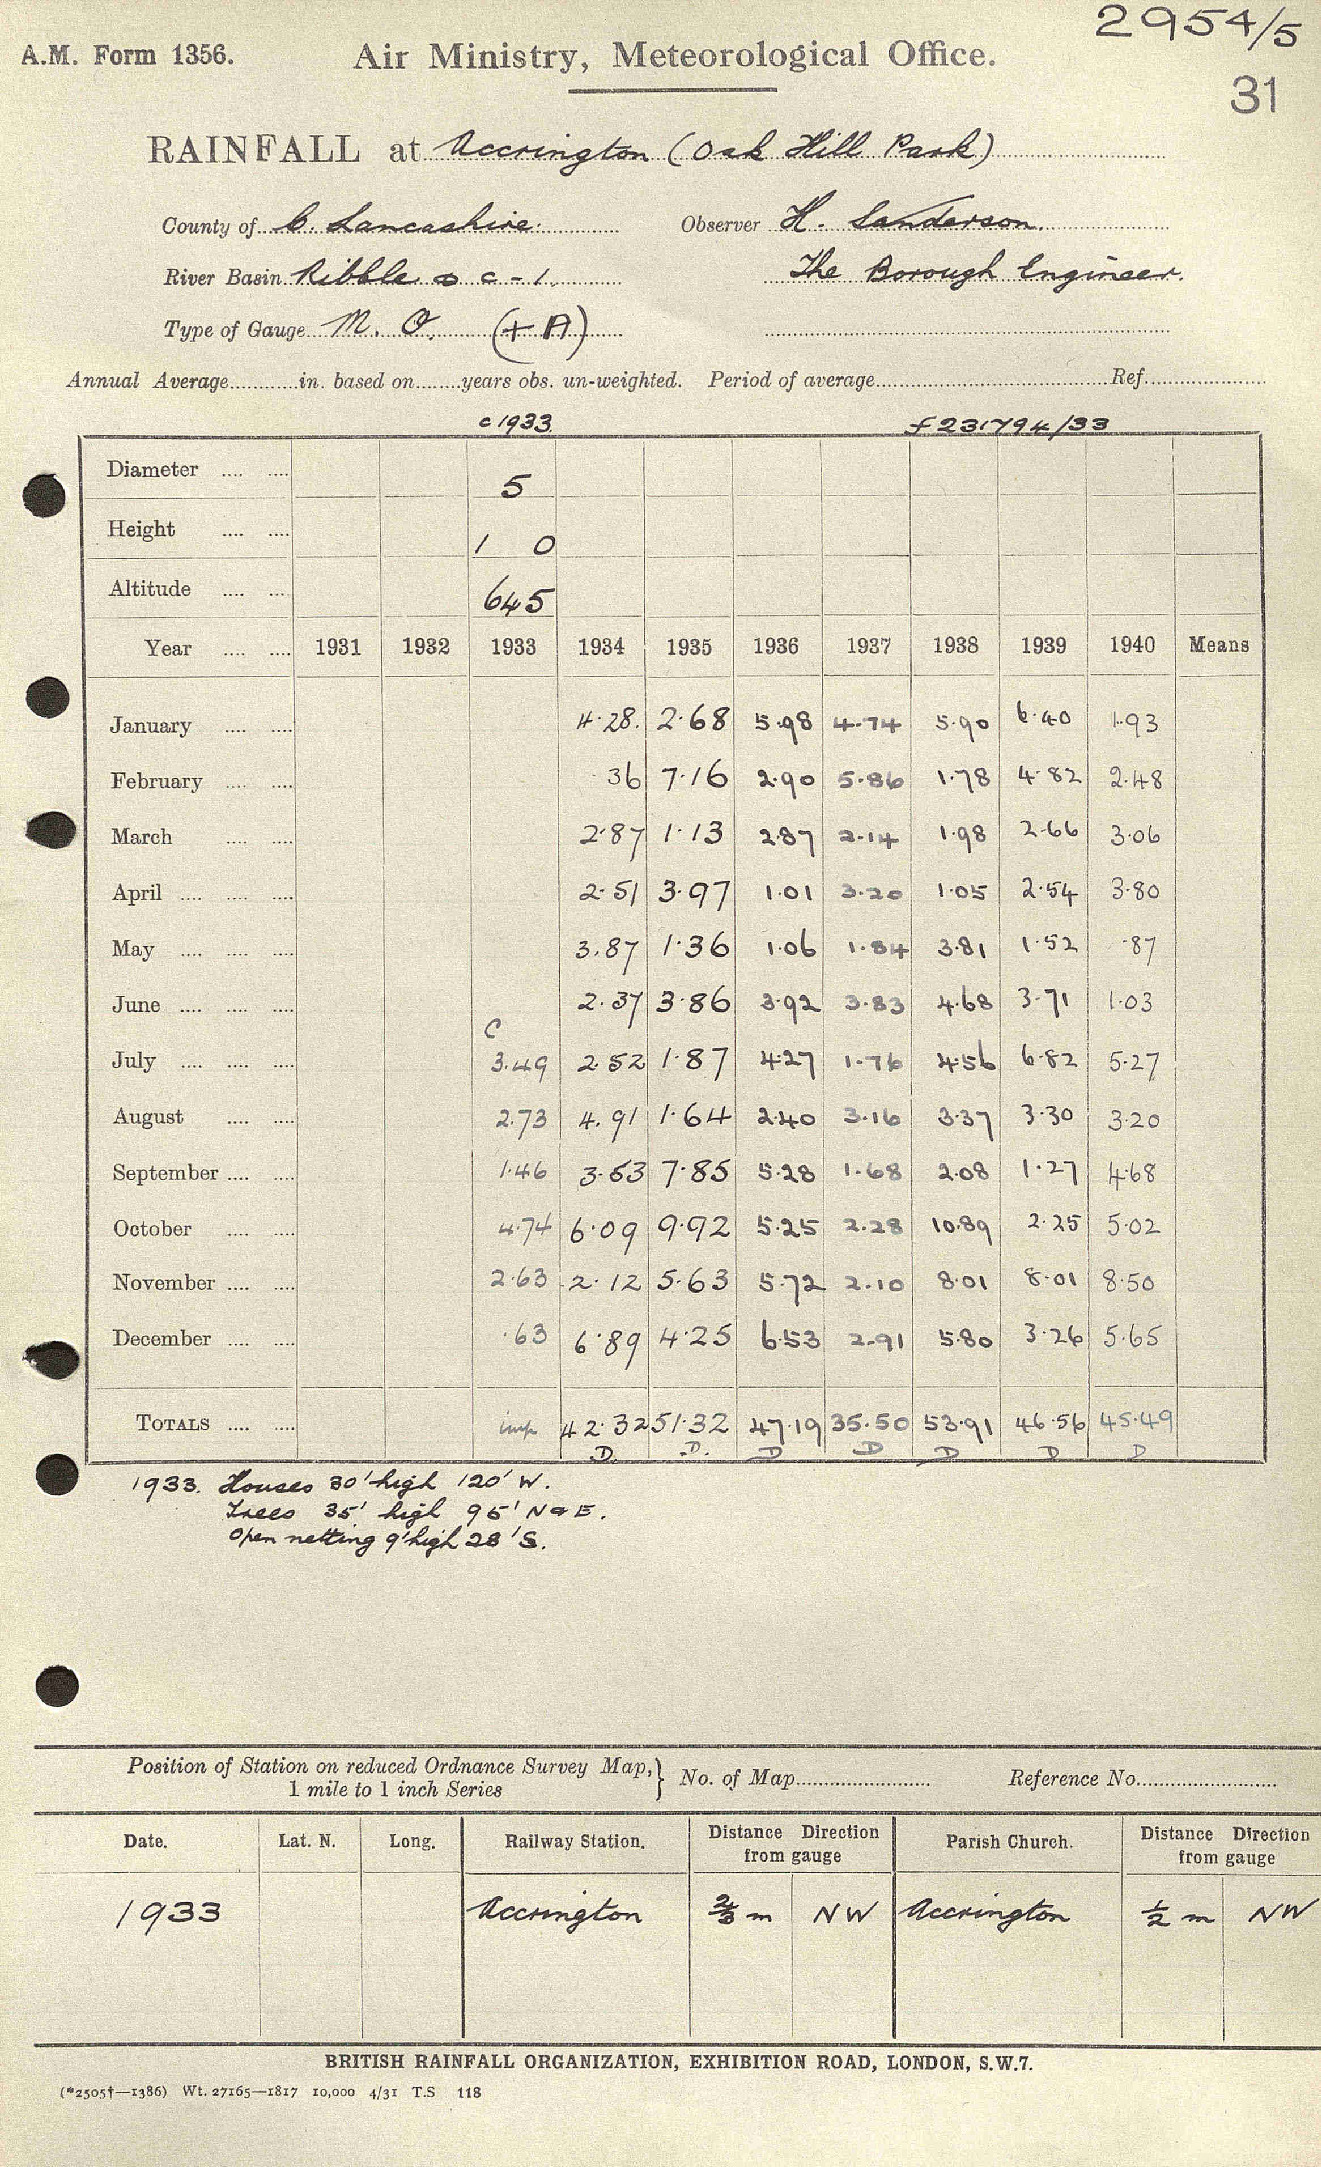 2954/5
A.M. Form 1356. Air Ministry, Meteorological Office.
31
RAINFALL at Accrington (Oak Hill Park)
County of C. Lancashire. Observer H. Sanderson.
River Basin Ribble c - 1. The Borough Engineer.
Type of Gauge M. O. (+ A)
Annual Average in. based on years obs. un-weighted. Period of average Ref.
c 1933 f 231794/33
Diameter 5
Height 1 0
Altitude 645
Year 1931 1932 1933 1934 1935 1936 1937 1938 1939 1940 Means
January 4.28. 2.68 5.98 4.74 5.90 6.40 1.93
February .36 7.16 2.90 5.86 1.78 4.82 2.48
March 2.87 1.13 2.87 2.14 1.98 2.66 3.06
April 2.51 3.97 1.01 3.20 1.05 2.54 3.80
May 3.87 1.36 1.06 1.84 3.81 1.52 .87
June 2.37 3.86 3.92 3.83 4.68 3.71 1.03
C
July 3.49 2.52 1.87 4.27 1.76 4.56 6.82 5.27
August 2.73 4.91 1.64 2.40 3.16 3.37 3.30 3.20
September 1.46 3.53 7.85 5.28 1.68 2.08 1.27 4.68
October 4.74 6.09 9.92 5.25 2.28 10.89 2.25 5.02
November 2.63 2.12 5.63 5.72 2.10 8.01 8.01 8.50
December .63 6.89 4.25 6.53 2.91 5.80 3.26 5.65
TOTALS imp 42.32 51.32 47.19 35.50 53.91 46.56 45.49
D. D. D D D D D
1933. Houses 30' high 120' W.
Trees 35' high 95' N & E.
Open netting 9' high 28' S.
Position of Station on reduced Ordnance Survey Map,} No. of Map Reference No.
1 mile to 1 inch Series
Date. Lat. N. Long. Railway Station. Distance Direction from gauge Parish Church. Distance Direction from gauge
1933 Accrington 2/3 m NW Accrington 1/2 m NW
BRITISH RAINFALL ORGANIZATION, EXHIBITION ROAD, LONDON, S.W.7.
(*2505†—1386) Wt. 27165—1817 10,000 4/31 T.S 118